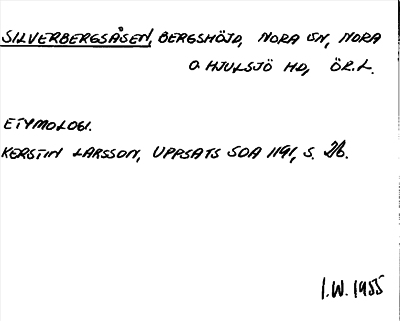 SILVERBERGSÅSEN, BERGSHÖJD, NORA SN, NORA
O HJULSJÖ HD, ÖR.L.
ETYMOLOGI.
KERSTIN LARSSON, UPPSATS SOA 1191, S. 26.
I.W. 1955